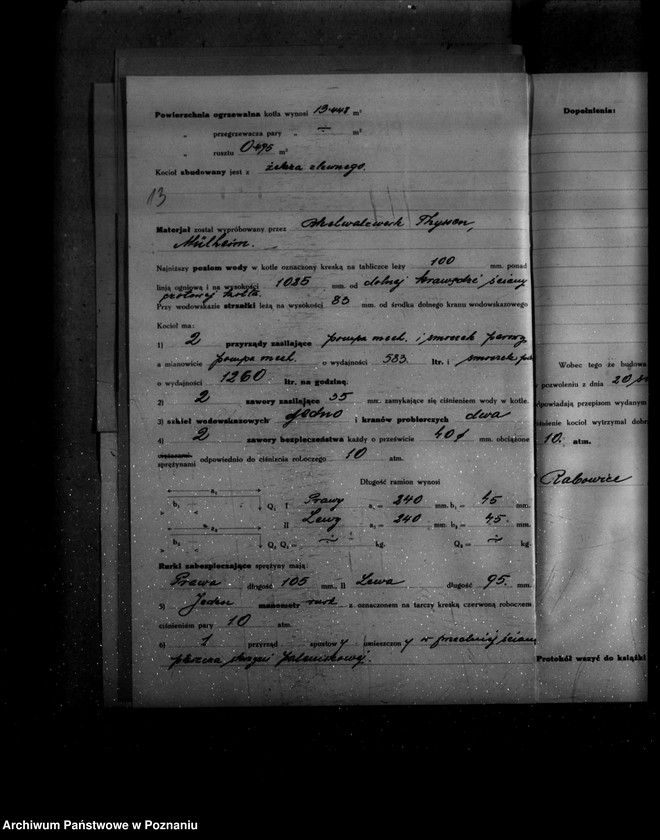 Powierzchnia ogrzewalna kotła wynosi 13.448 m²
„ przegrzewacza pary „ ÷ m²
„ rusztu 0.495 m²
Kocioł zbudowany jest z żelaza zlewnego.
13
Materjał został wypróbowany przez Thyssen,
Mülheim.
Najniższy poziom wody w kotle oznaczony kreską na tabliczce leży 100 mm. ponad
linją ogniową i na wysokości 1025 mm. od dolnej krawędzi ściany
przodowej kotła.
Przy wodowskazie strzałki leżą na wysokości 83 mm. od środka dolnego kranu wodowskazowego
Kocioł ma:
1) 2 przyrządy zasilające pompa mech. i smoczek parowy
a mianowicie pompa mech. o wydajności 583 ltr. i smoczek
o wydajności 1260 ltr. na godzinę.
2) 2 zawory zasilające 35 mm. zamykające się ciśnieniem wody w kotle.
3) szkieł wodowskazowych jedno i kranów probierczych dwa
4) 2 zawory bezpieczeństwa każdy o prześwicie 40 mm. obciążone
sprężynami odpowiednio do ciśnienia roboczego 10 atm.
Długość ramion wynosi
a₁ b₁ Q₁ I Prawy a₁ = 240 mm. b₁ = 45 mm.
II Lewy a₂ = 240 mm. b₂ = 45. mm.
a₂ b₂ Q₂ Q₁ = ÷ kg. Q₂ = ÷ kg.
Rurki zabezpieczające sprężyny mają:
Prawa długość 105 mm. II Lewa długość 95. mm.
5) Jeden manometr z oznaczonem na tarczy kreską czerwoną roboczem
ciśnieniem pary 10 atm.
6) 1 przyrząd spustowy umieszczony w przedniej ścianie
płaszcza skrzyni paleniskowej.
Dopełnienia:
Wobec tego że budowa
pozwoleniu z dnia 20/
odpowiadają przepisom wydanym
ciśnienie kocioł wytrzymał dobr
10. atm.
Rabowice
Protokół wszyć do książki
Archiwum Państwowe w Poznaniu